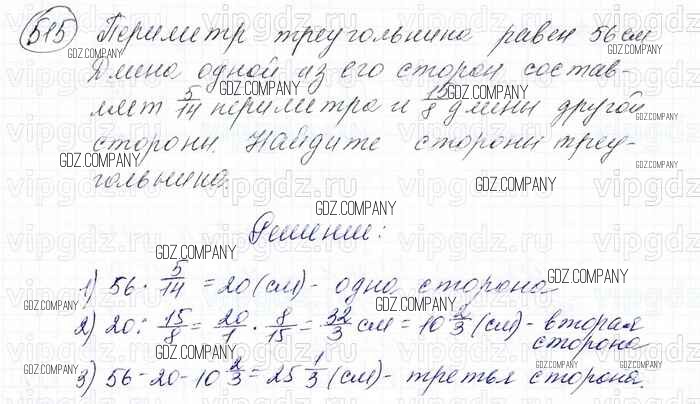 515 Периметр треугольника равен 56 см
Длина одной из его сторон состав-
ляет 5/14 периметра и 15/8 длины другой
стороны. Найдите стороны треу-
гольника.
Решение:
1) 56 · 5/14 = 20 (см) - одна сторона
2) 20 : 15/8 = 20/1 · 8/15 = 32/3 см = 10 2/3 (см) - вторая
сторона
3) 56 - 20 - 10 2/3 = 25 1/3 (см) - третья сторона.
vipgdz.ru
GDZ.COMPANY